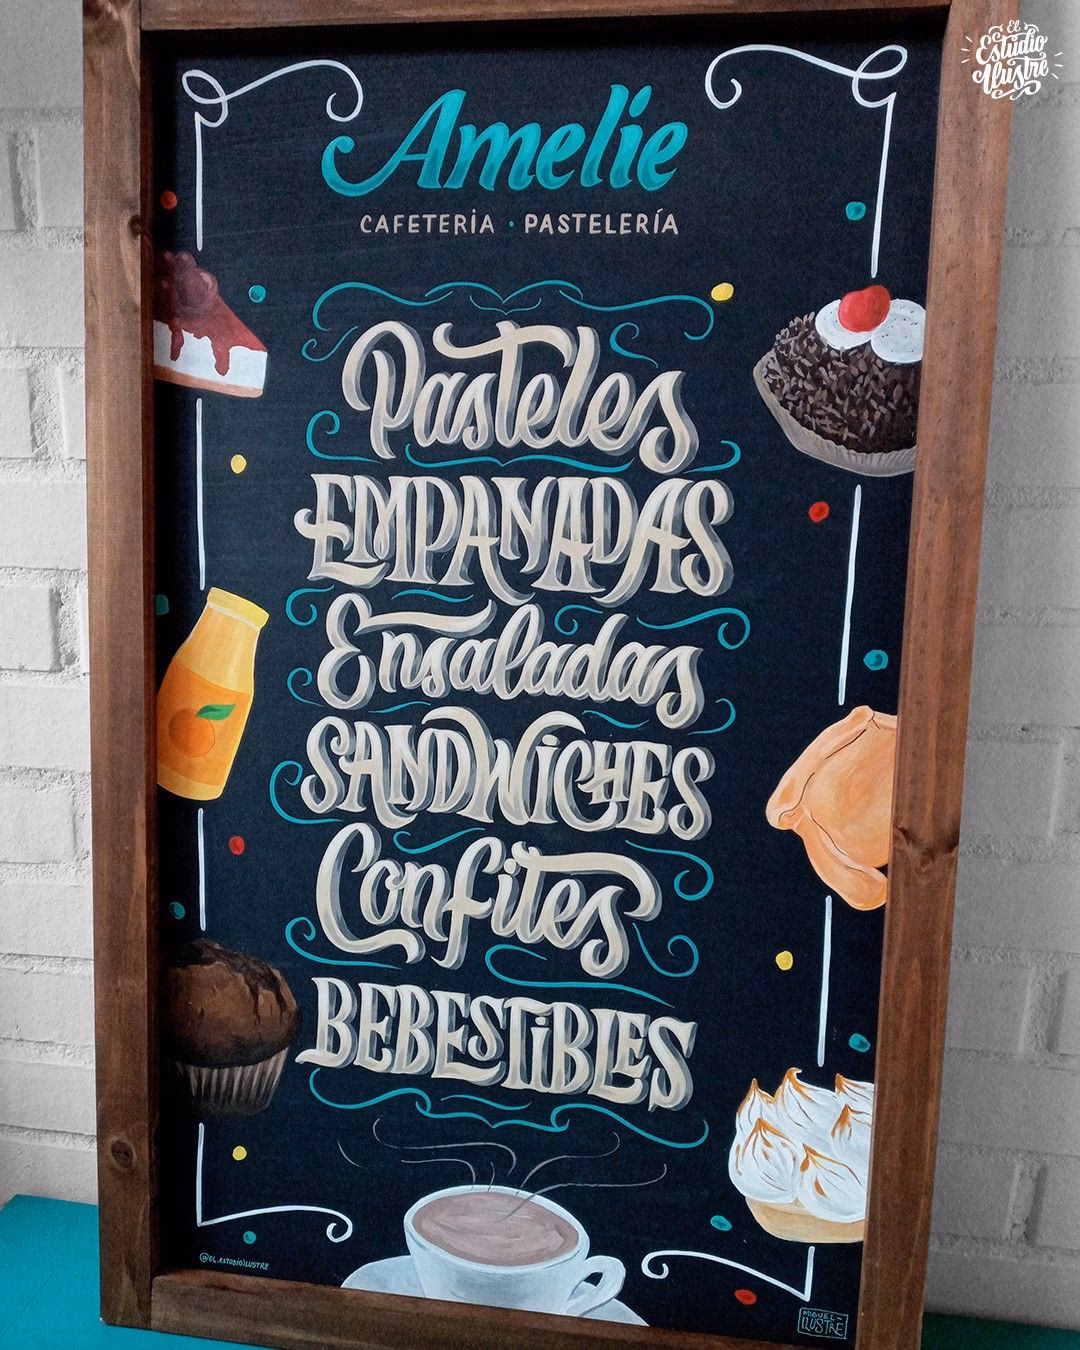 El
Estudio
Ilustre
Amelie
CAFETERÍA · PASTELERÍA
Pasteles
EMPANADAS
Ensaladas
SANDWiCHES
Confites
BEBESTiBLES
@EL.ESTUDIOILUSTRE
MIGUEL-
ILUSTRE